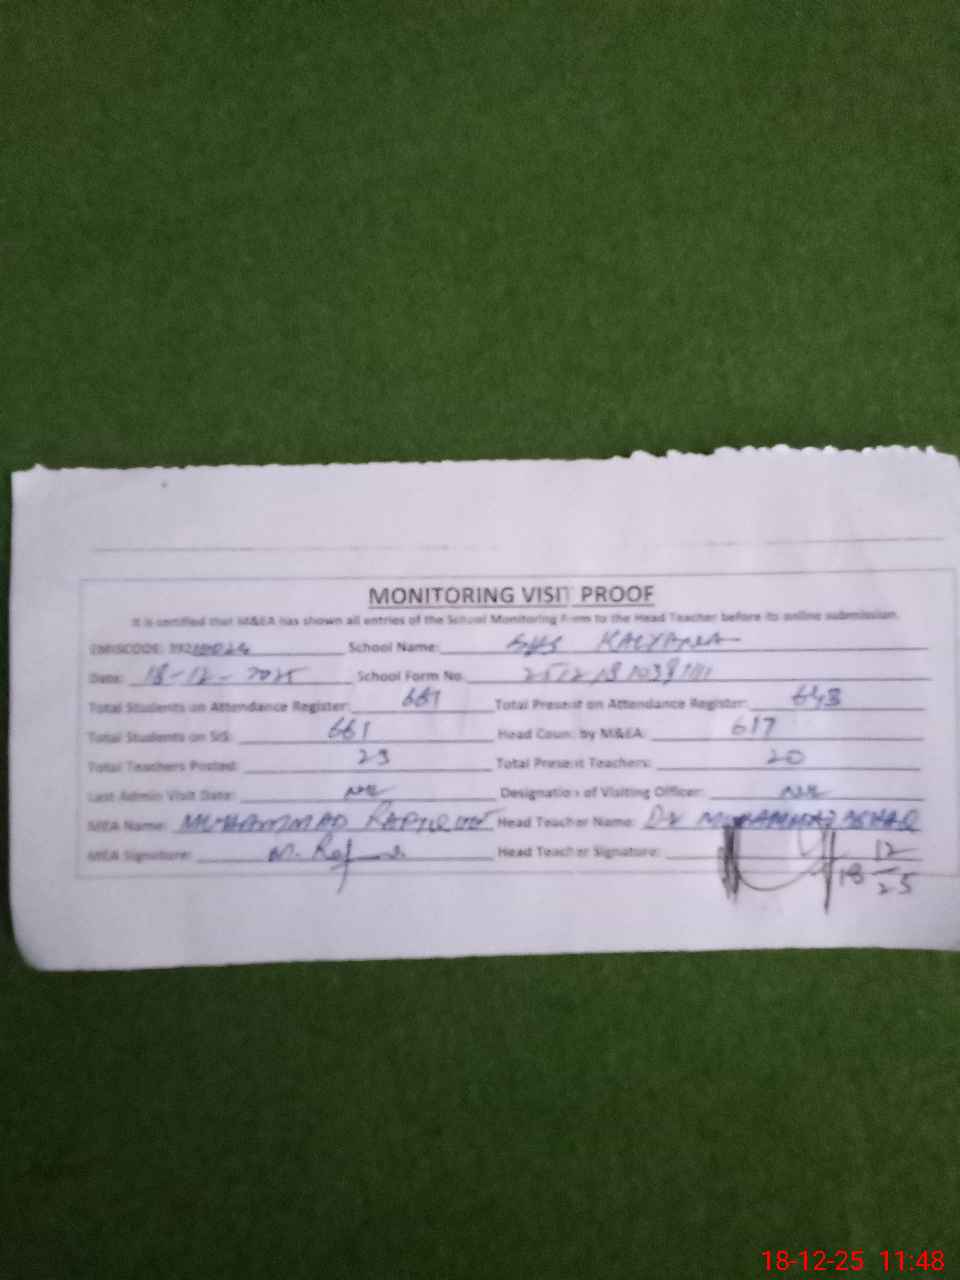 MONITORING VISIT PROOF
It is certified that M&EA has shown all entries of the School Monitoring Form to the Head Teacher before its online submission.
EMISCODE: School Name: KALYANA
Date: 18-12-2025 School Form No.
Total Students on Attendance Register: 661 Total Present on Attendance Register: 643
Total Students on SIS: 661 Head Count by M&EA: 617
Total Teachers Posted: 23 Total Present Teachers: 20
Last Admin Visit Date: Nil Designation of Visiting Officer: Nil
MEA Name: MUHAMMAD Head Teacher Name: Dr MUHAMMAD
MEA Signature: Head Teacher Signature:
18 12
25
18-12-25 11:48